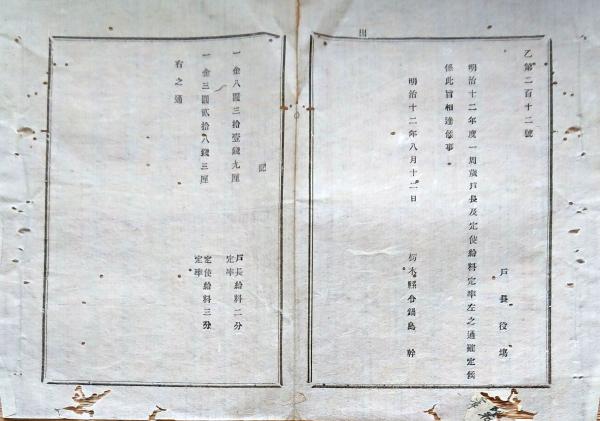 乙第二百十二號
戸長役場
明治十二年度一周歳戸長及定使給料定率左之通確定候
條此旨相達候事
明治十二年八月十二日
栃木縣令鍋島幹
記
一金八圓三拾壹錢九厘
戸長給料二分
定率
一金三圓貳拾八錢三厘
定使給料三分
定率
右之通